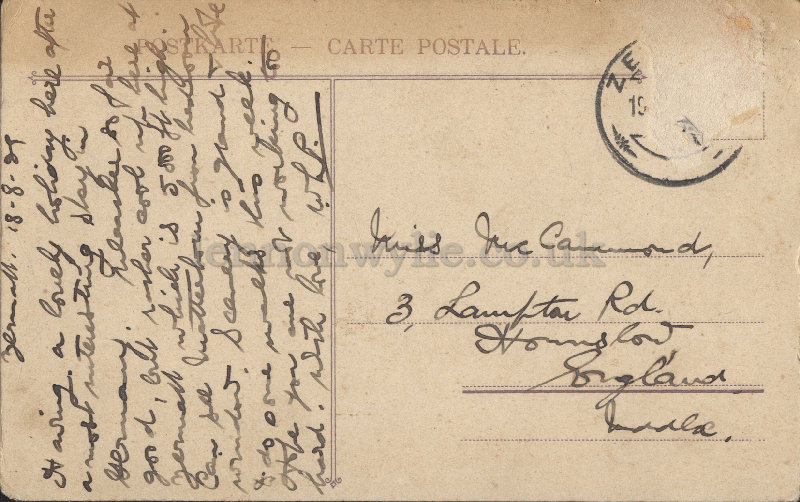 POSTKARTE — CARTE POSTALE.
Zermatt. 18-8-29
Having a lovely holiday here after
a most interesting stay in
Germany. Weather so far
good, but rather cool up here at
Zermatt which is 5,000 ft high.
Can see Matterhorn from bedroom
window. Scenery is grand & we
do some walks this week.
Hope you are not working too
hard. With love W.L.P.
ZE
19
Miss McCammond,
3, Lampton Rd.
Hounslow
England
Middlx.
lennonwylie.co.uk